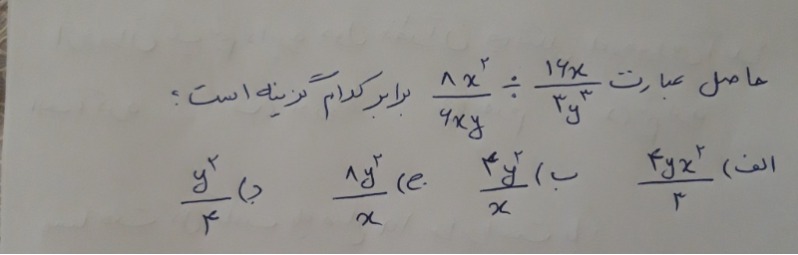 حاصل عبارت \frac{۸x^۲}{۶xy} ÷ \frac{۱۶x}{۳y^۳} برابر کدام گزینه است:
الف) \frac{۴yx^۲}{۳} ب) \frac{۴y^۲}{x} ج) \frac{۸y^۲}{x} د) \frac{y^۲}{۴}